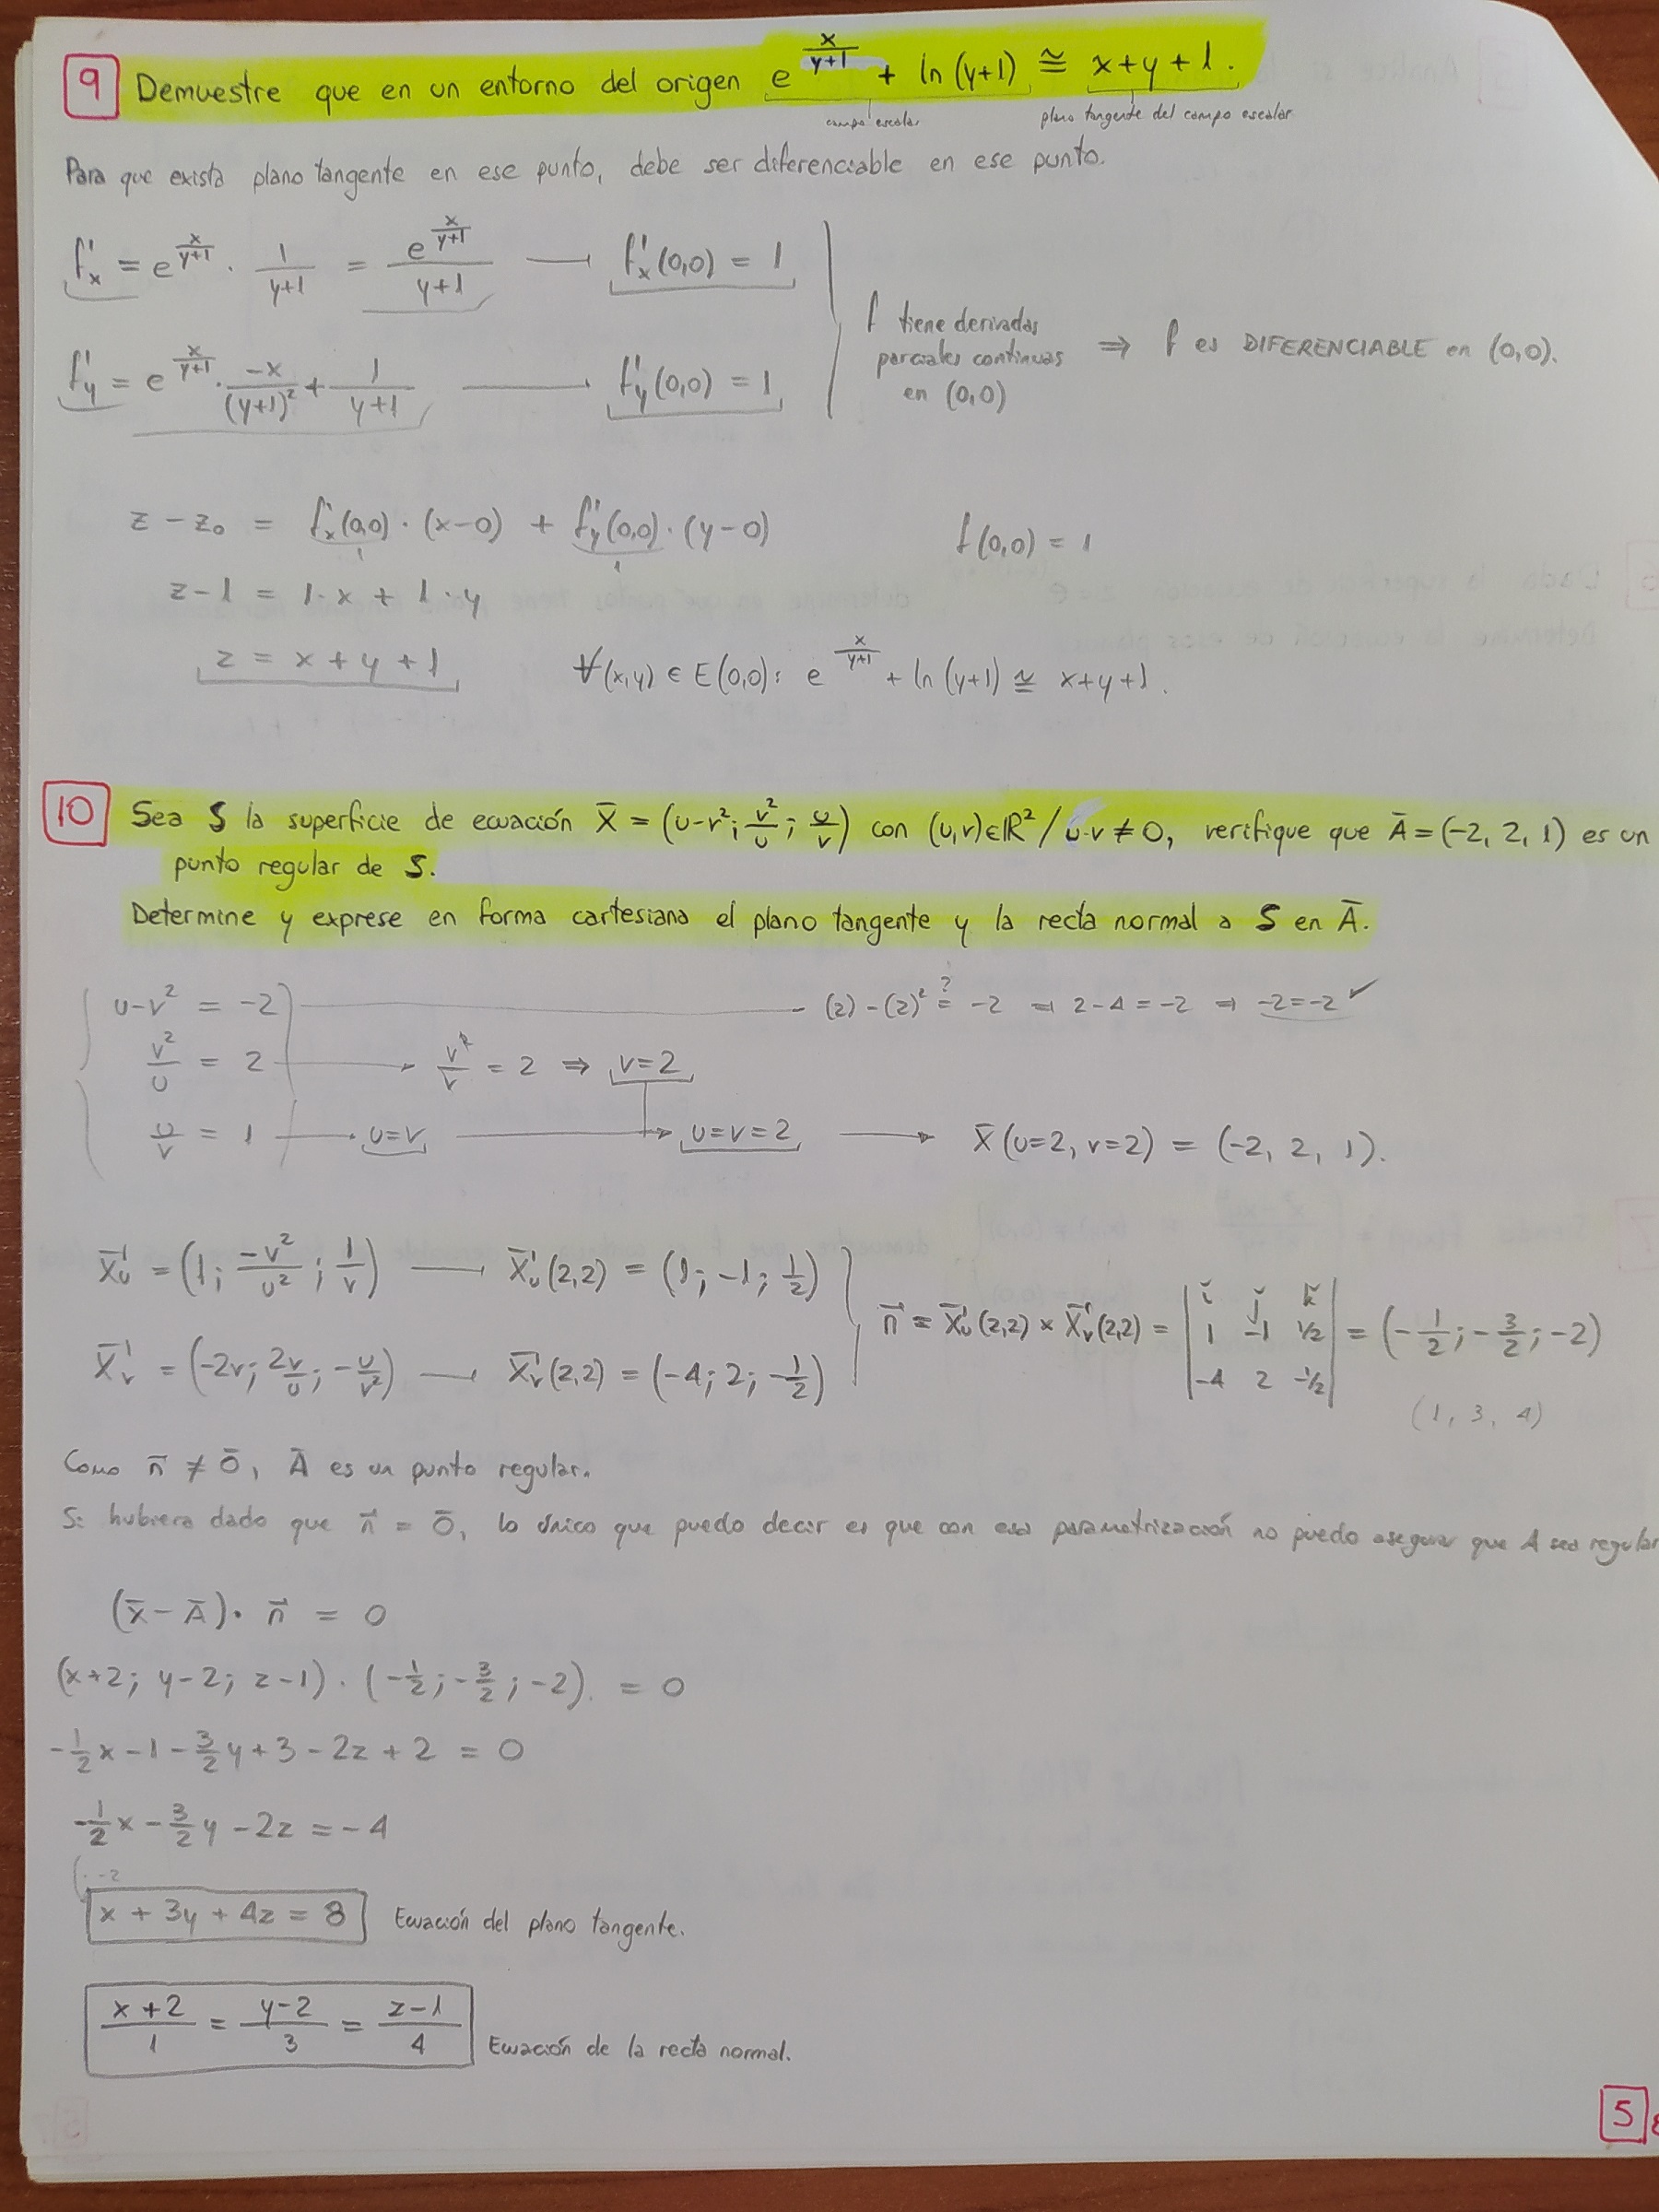 9 Demuestre que en un entorno del origen e^(x/(y+1)) + ln(y+1) ≅ x+y+1.
campo escalar
plano tangente del campo escalar
Para que exista plano tangente en ese punto, debe ser diferenciable en ese punto.
f'x = e^(x/(y+1)) · 1/(y+1) = e^(x/(y+1))/(y+1) → f'x(0,0) = 1
f'y = e^(x/(y+1)) · -x/(y+1)² + 1/(y+1) → f'y(0,0) = 1
f tiene derivadas
parciales continuas
en (0,0)
⇒ f es DIFERENCIABLE en (0,0).
z - z₀ = f'x(0,0) · (x-0) + f'y(0,0) · (y-0)
1 1
f(0,0) = 1
z-1 = 1·x + 1·y
z = x+y+1
∀(x,y) ∈ E(0,0): e^(x/(y+1)) + ln(y+1) ≅ x+y+1.
10 Sea S la superficie de ecuación X̄ = (u-v²; v²/u; u/v) con (u,v)∈ℝ² / u·v ≠ 0, verifique que Ā = (-2, 2, 1) es un
punto regular de S.
Determine y exprese en forma cartesiana el plano tangente y la recta normal a S en Ā.
u-v² = -2 — (2)-(2)² ≟ -2 ⇒ 2-4 = -2 ⇒ -2=-2 ✓
v²/u = 2 → v²/v = 2 ⇒ v=2
u/v = 1 → u=v → u=v=2 → X̄(u=2, v=2) = (-2, 2, 1).
X̄'u = (1; -v²/u²; 1/v) → X̄'u(2,2) = (1; -1; 1/2)
X̄'v = (-2v; 2v/u; -u/v²) → X̄'v(2,2) = (-4; 2; -1/2)
n⃗ = X̄'u(2,2) × X̄'v(2,2) = | ĭ j̆ k̆ |
| 1 -1 1/2 |
| -4 2 -1/2 |
= (-1/2; -3/2; -2)
(1, 3, 4)
Como n⃗ ≠ 0̄, Ā es un punto regular.
Si hubiera dado que n⃗ = 0̄, lo único que puedo decir es que con esa parametrización no puedo asegurar que A sea regular
(x̄ - Ā) · n⃗ = 0
(x+2; y-2; z-1) · (-1/2; -3/2; -2) = 0
-1/2 x - 1 - 3/2 y + 3 - 2z + 2 = 0
-1/2 x - 3/2 y - 2z = -4
· -2
x + 3y + 4z = 8 Ecuación del plano tangente.
(x+2)/1 = (y-2)/3 = (z-1)/4 Ecuación de la recta normal.
5